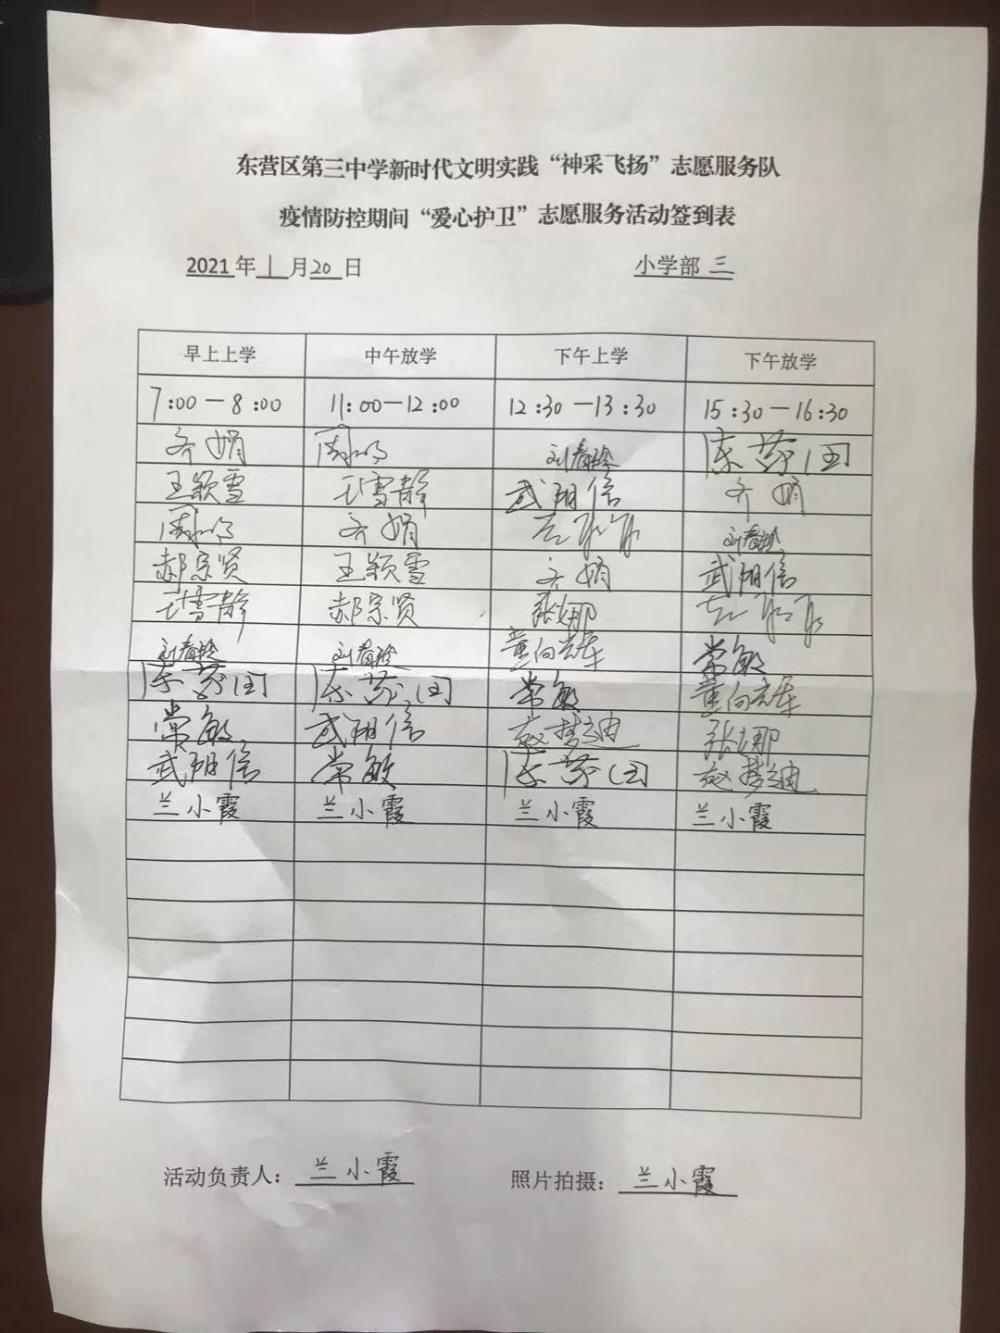 东营区第三中学新时代文明实践“神采飞扬”志愿服务队
疫情防控期间“爱心护卫”志愿服务活动签到表
2021年1月20日 小学部 三
早上上学 中午放学 下午上学 下午放学
7:00—8:00 11:00—12:00 12:30—13:30 15:30—16:30
齐娟 刘春玲
王颖雪 王雪静 武翔信 齐娟
齐娟 刘春玲
郝宗贤 王颖雪 齐娟 武翔信
王雪静 郝宗贤 张娜
刘春玲 刘春玲 董向辉 常敏
常敏 董向辉
常敏 武翔信 赵梦迪 张娜
武翔信 常敏 赵梦迪
兰小霞 兰小霞 兰小霞 兰小霞
活动负责人：兰小霞 照片拍摄：兰小霞